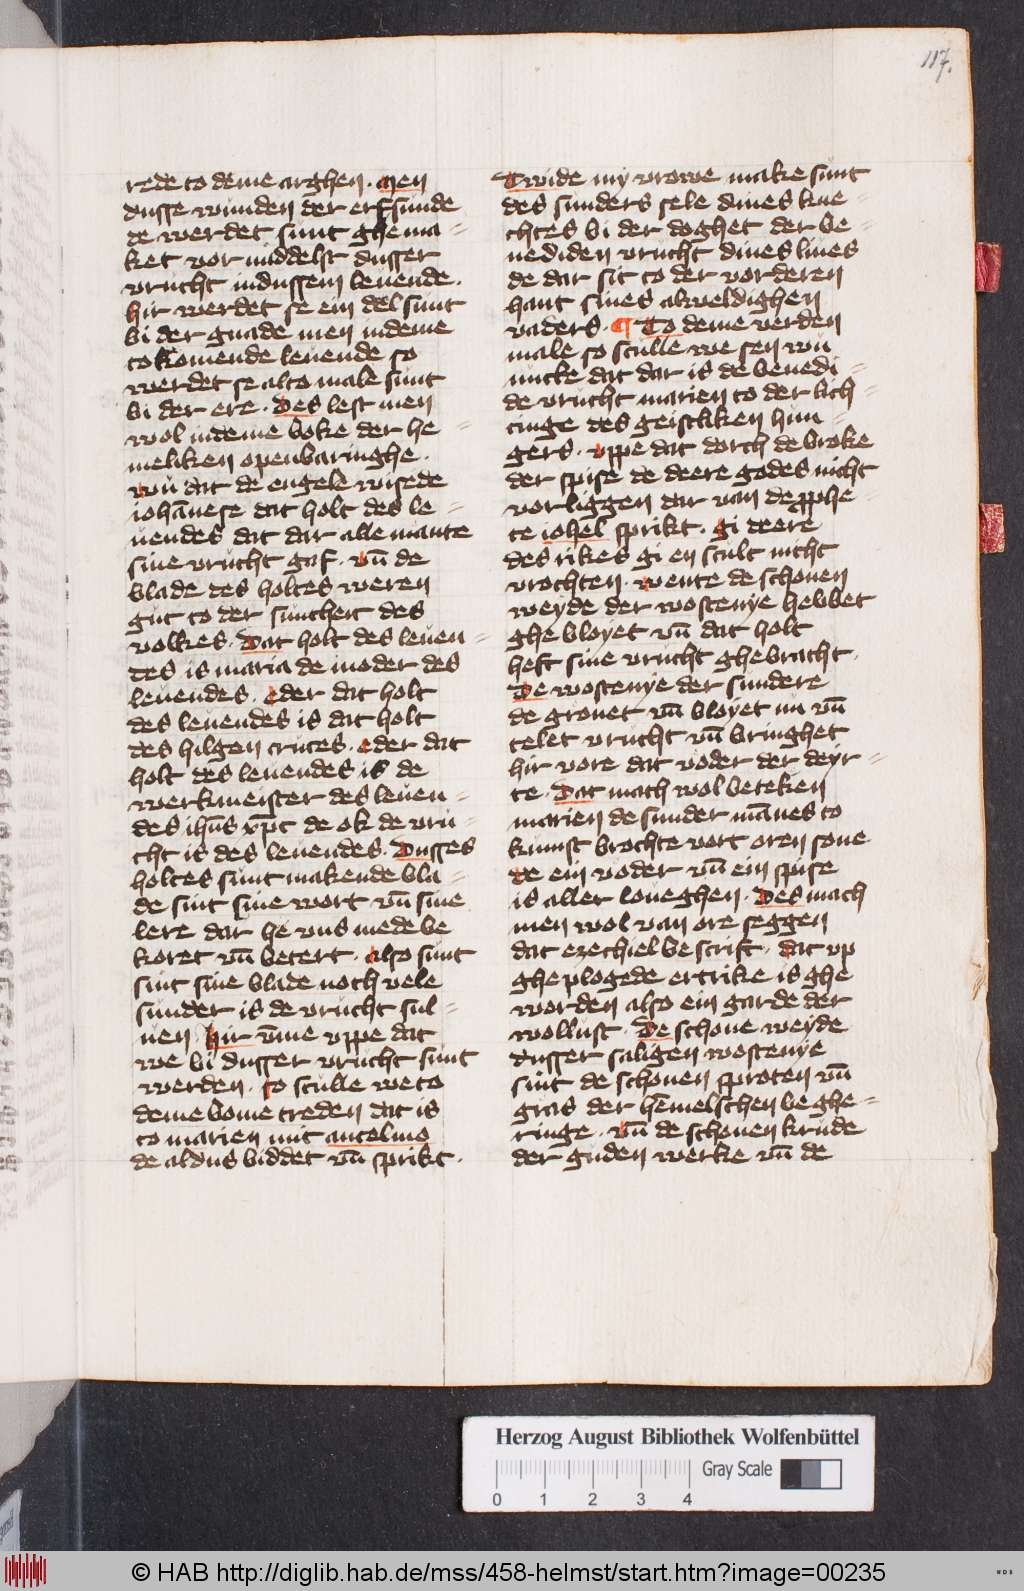 117.
rede to deme arghen. Men
dusse wunden der erfsunde
de werdet sunt ghema-
ket vor middelst dusser
vrucht in dussem leuende.
hir werdet se ein del sunt
bi der gnade men in deme
tokomende leuende so
werdet se alto male sunt
bi der ere. Des lest men
wol in deme boke der he-
meliken openbaringhe.
wu dat de engele wisede
iohānese dat holt des le-
uendes dat dar alle mante
sine vrucht gaf. vn̄ de
blade des holtes weren
gut to der suntheit des
volkes. Dat holt des leuen-
des is maria de moder des
leuendes. eder dat holt
des leuendes is dat holt
des hilgen cruces. eder dat
holt des leuendes is de
werkmeister des leuen-
des ihūs xp̄c de ok de vru-
cht is des leuendes. Dusses
holtes sunt makende bla-
de sint sine wort vn̄ sine
lere dar he vns mede be
koret vn̄ betert. also sunt
sint sine blade noch vele
sunder is de vrucht sul-
uen. hir v̄me vppe dat
we bi dusser vrucht sunt
werden. so sculle we to
deme bome treden dat is
to marien mit ancelmo
de aldus biddet vn̄ sprikt.
Twide my vrowe make sunt
des sunders sele dines kne-
chtes bi der doghet der be-
nediden vrucht dines liues
de dar sit to der vorderen
hant sines alweldighen
vaders. ¶ To deme verden
male so sculle we sen wu
nutke dat dar is de benedi-
de vrucht marien to der lich-
tinge des geistliken hun-
gers. vppe dat dorch de broke
der spise de deere godes nicht
vorliggen dar van de pphe-
te iohel sprikt. Gi deere
des rikes gi en scult nicht
vrochten. wente de schonen
weyde der wostenye hebbet
ghebloyet vn̄ dat holt
heft sine vrucht ghebracht.
De wostenye der sundere
de gronet vn̄ bloyet nu vn̄
telet vrucht vn̄ bringhet
hir vore dat voder der deyr-
te. Dat mach wol beteken
marien de sunder mānes to
kumst brochte vort oren sone
de ein voder vn̄ ein spise
is aller loueghen. Des mach
men wol van ore seggen
dat ezechiel bescrift. dat vp
gheplogede ertrike is ghe
worden also ein garde der
wollust. De schone weyde
dusser saligen wostenye
sint de schonen sproten vn̄
gras der hēmelschen beghe-
ringe. vn̄ de schonen krude
der guden werke vn̄ de
Herzog August Bibliothek Wolfenbüttel
Gray Scale
0 1 2 3 4
© HAB http://diglib.hab.de/mss/458-helmst/start.htm?image=00235